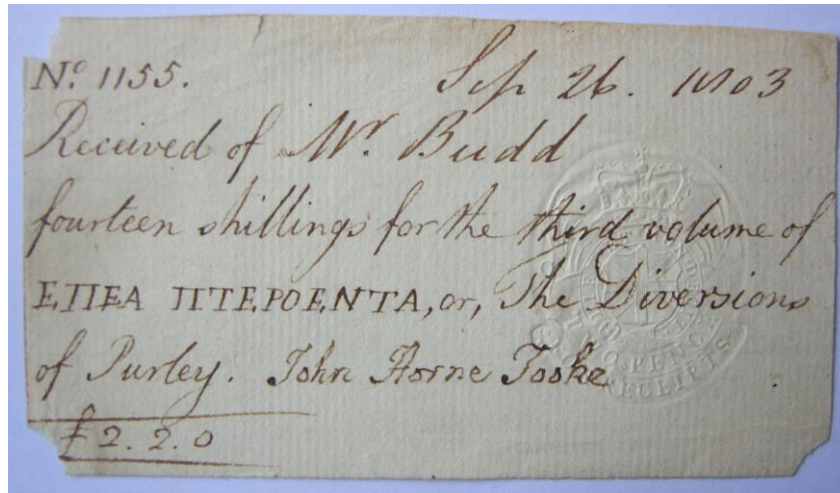 No. 1155. Sep 26. 1803
Received of Mr. Budd
fourteen shillings for the third volume of
ΕΠΕΑ ΠΤΕΡΟΕΝΤΑ, or, The Diversions
of Purley. John Horne Tooke
£2.2.0
TWO PENCE
RECEIPTS